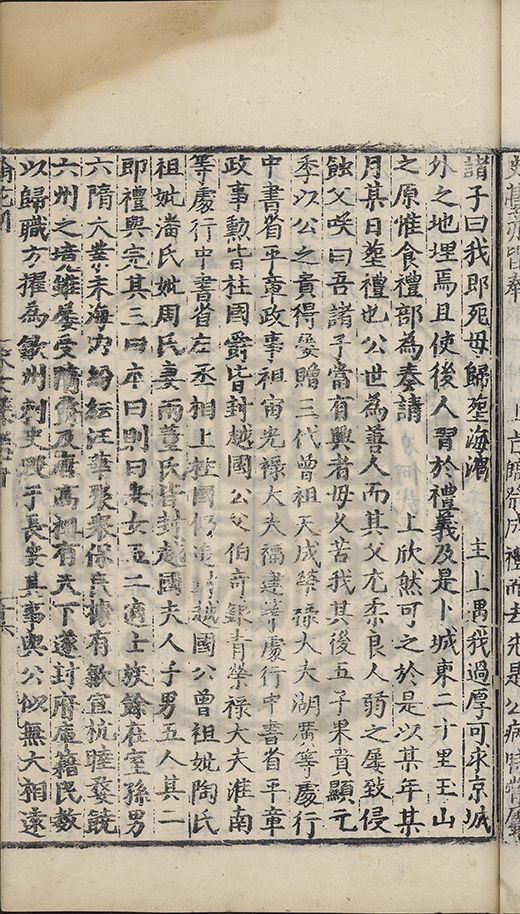 上
諸子曰我即死毋歸塟海濱 主上遇我過厚可求京城
外之地埋焉且使後人習於禮義及是卜城東二十里王山
之原惟食禮部為奏請 上欣然可之於是以某年某
月某日塟禮也公世為善人而其父尤柔良人弱之屢致侵
蝕父唉曰吾諸子當有興者毋久苦我其後五子果貴顯元
季以公之貴得要贈三代曾祖天成榮禄大夫湖廣等處行
中書省平章政事祖宙光禄大夫福建等處行中書省平章
政事勳皆柱國爵皆封越國公父伯奇銀青榮禄大夫淮南
等處行中書省左丞相上柱國仍追封越國公曾祖妣陶氏
祖妣潘氏妣周氏妻兩董氏皆封越國夫人子男五人其二
即禮與完其三曰本曰則曰 女五二適士族餘在室孫男
六隋大業末海内紛紜汪華聚衆保民據有歙宣杭睦婺饒
六州之境雖屢受隋賞及唐高祖有天下遂封府庫籍民數
以歸職方擢為歙州刺史 子長安其事與公似無大相遠